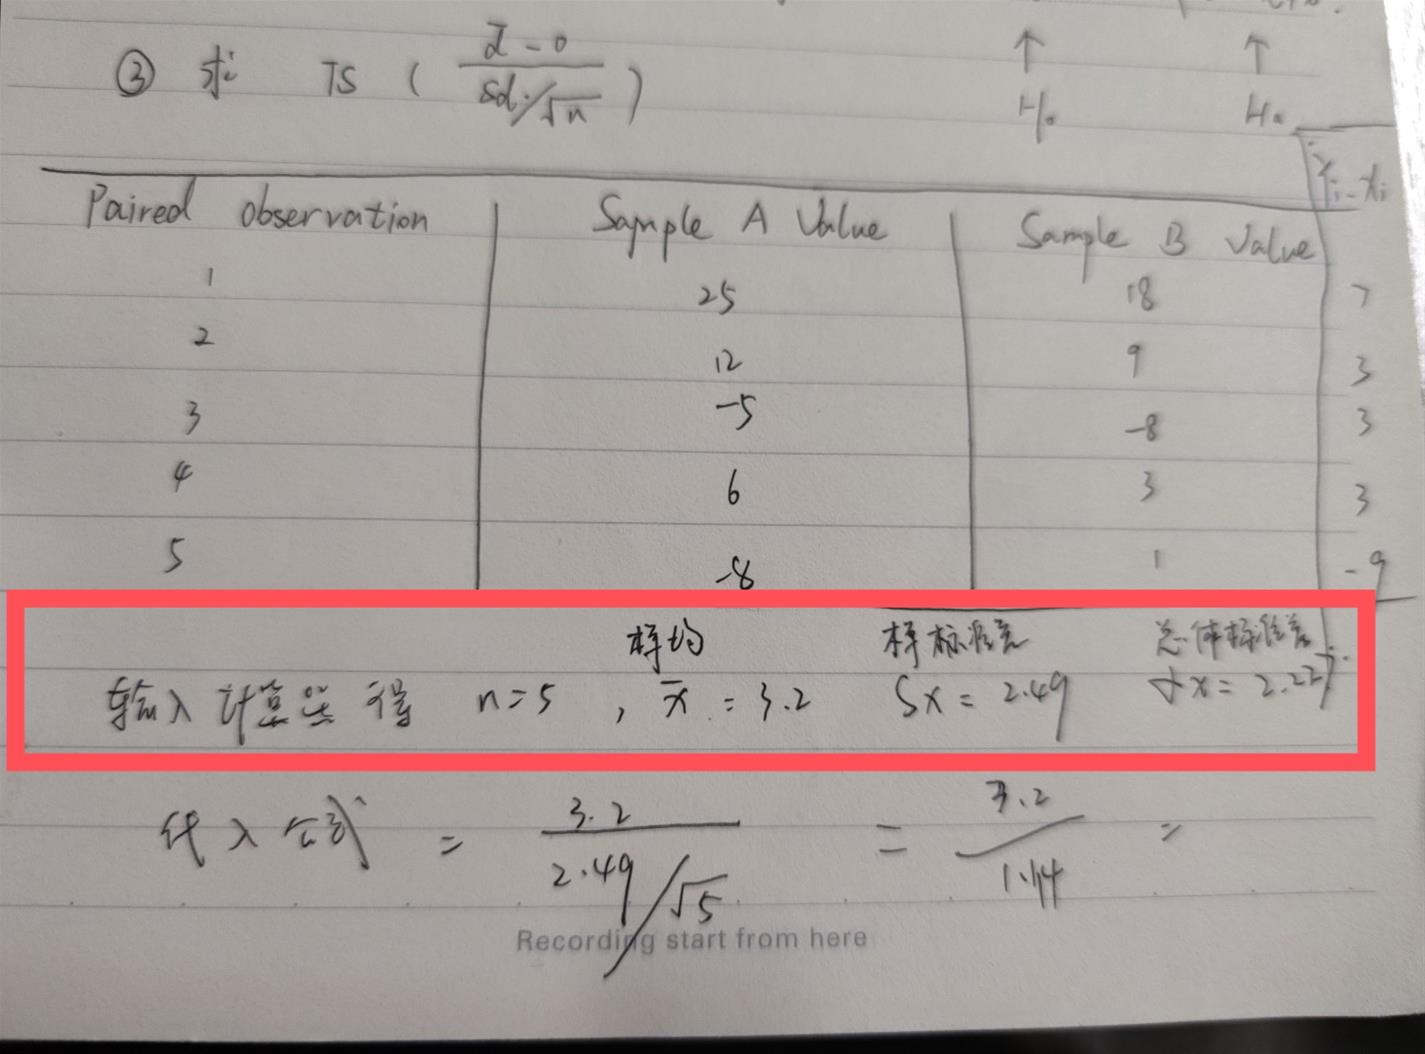 ③ 求 TS ( d̄ - 0 / sd/√n )
↑ ↑
H₀ Hₐ
Paired observation Sample A Value Sample B Value Yi-Xi
1 25 18 7
2 12 9 3
3 -5 -8 3
4 6 3 3
5 -8 1 -9
样均 样标准差 总体标准差
输入计算器得 n=5 , x̄ = 3.2 Sx = 2.49 σx = 2.227
代入公式 = 3.2 / 2.49/√5 = 3.2 / 1.114 =
Recording start from here